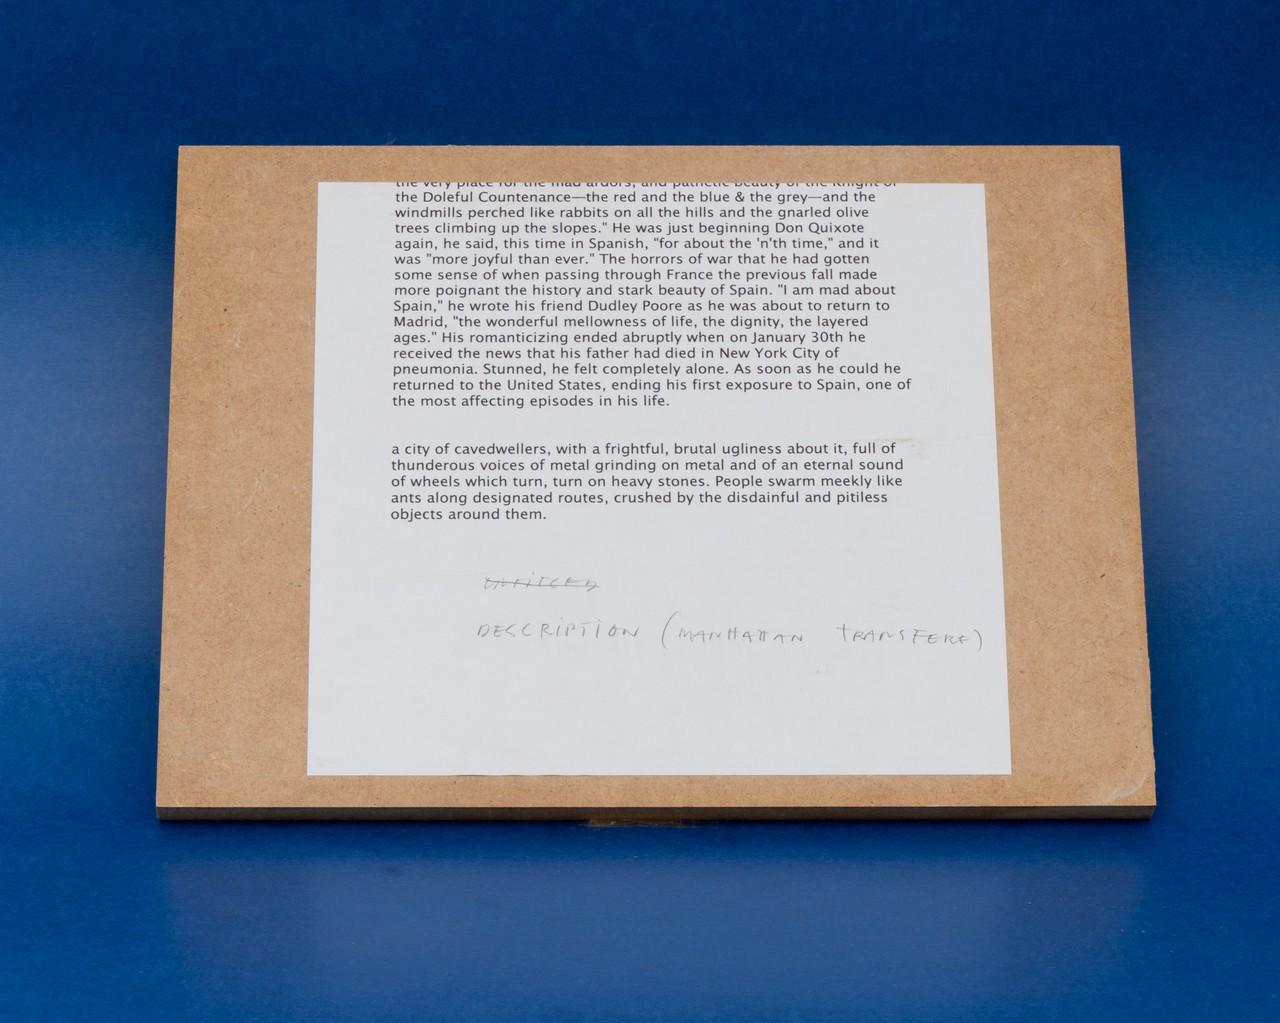 the very place for the mad ardors, and pathetic beauty of the Knight of
the Doleful Countenance—the red and the blue & the grey—and the
windmills perched like rabbits on all the hills and the gnarled olive
trees climbing up the slopes." He was just beginning Don Quixote
again, he said, this time in Spanish, "for about the 'n'th time," and it
was "more joyful than ever." The horrors of war that he had gotten
some sense of when passing through France the previous fall made
more poignant the history and stark beauty of Spain. "I am mad about
Spain," he wrote his friend Dudley Poore as he was about to return to
Madrid, "the wonderful mellowness of life, the dignity, the layered
ages." His romanticizing ended abruptly when on January 30th he
received the news that his father had died in New York City of
pneumonia. Stunned, he felt completely alone. As soon as he could he
returned to the United States, ending his first exposure to Spain, one of
the most affecting episodes in his life.
a city of cavedwellers, with a frightful, brutal ugliness about it, full of
thunderous voices of metal grinding on metal and of an eternal sound
of wheels which turn, turn on heavy stones. People swarm meekly like
ants along designated routes, crushed by the disdainful and pitiless
objects around them.
DESCRIPTION (MANHATTAN TRANSFERE)